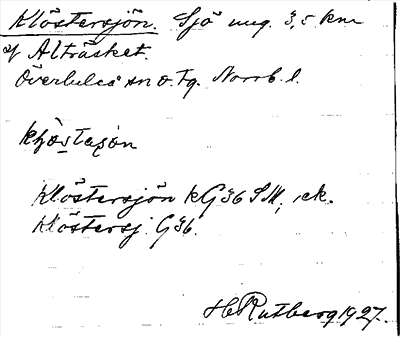 Klöstersjön. Sjö ung. 3,5 km
v Alträsket.
Överluleå sn o. Tg. Norrb. l.
Klöstersjön kG36 SM, ek.
Klöstersj. G36.
H Rutberg 1927.